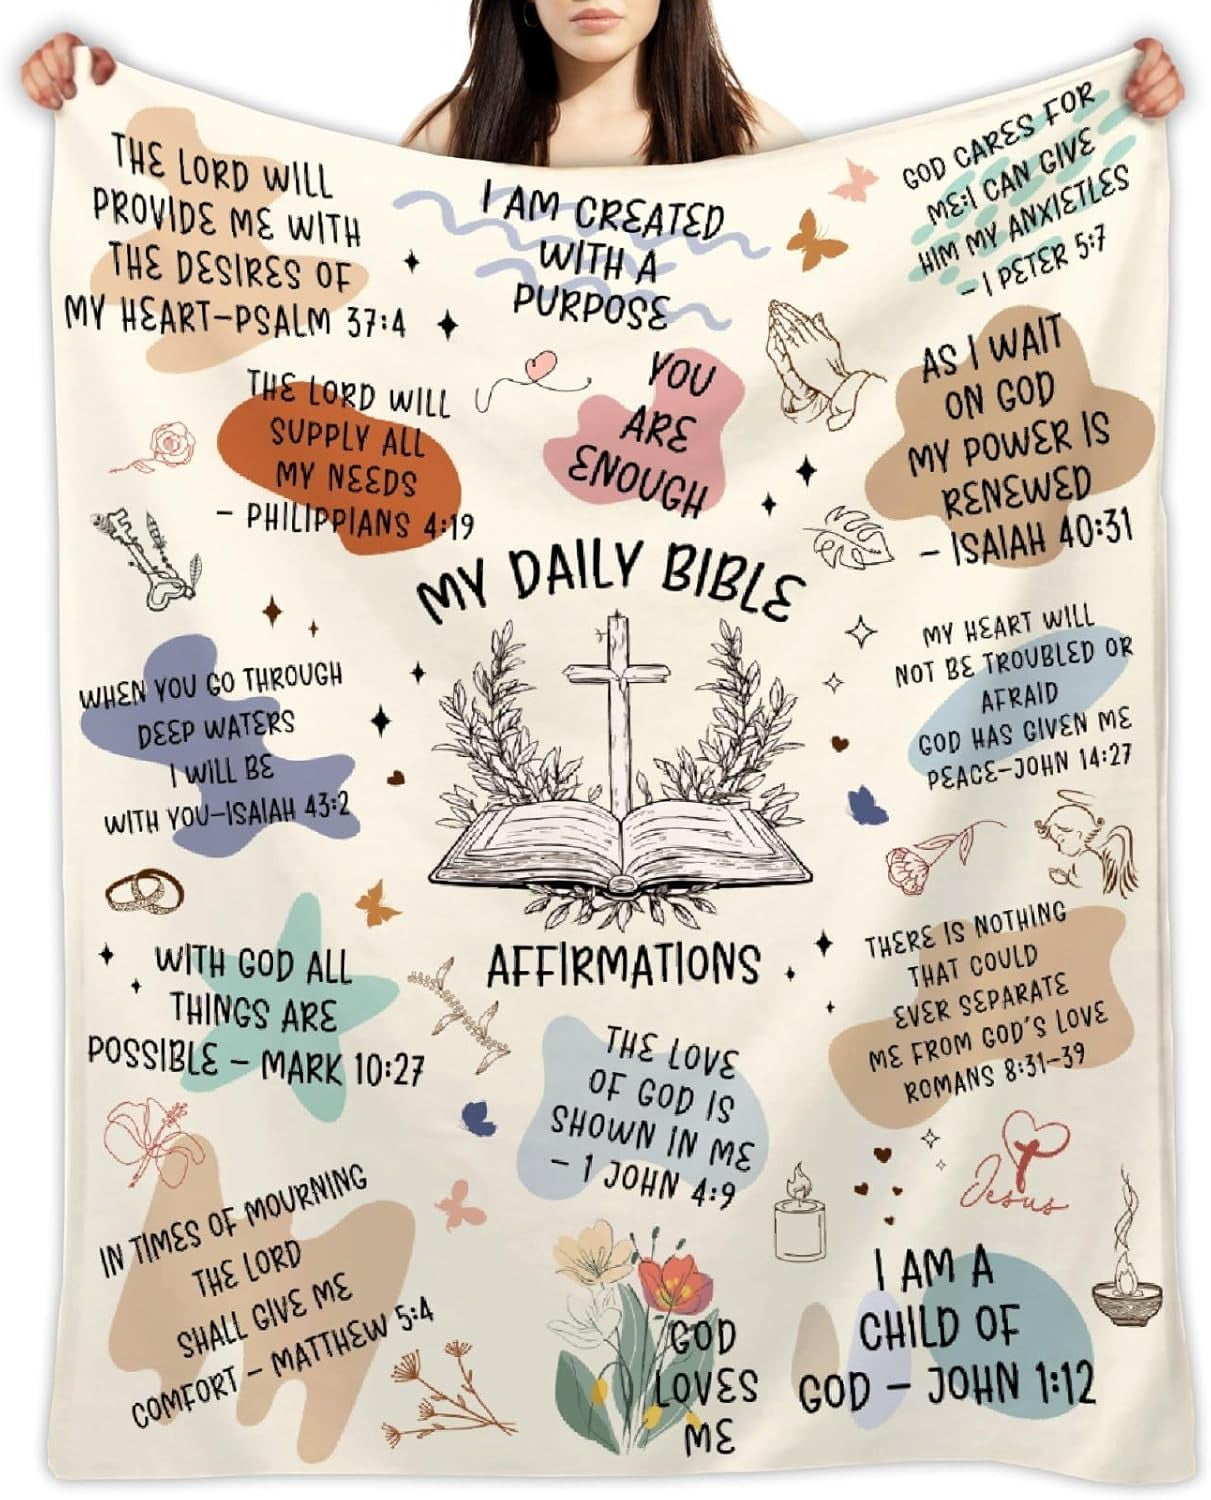 THE LORD WILL
PROVIDE ME WITH
THE DESIRES OF
MY HEART-PSALM 37:4
I AM CREATED
WITH A
PURPOSE
GOD CARES FOR
ME:I CAN GIVE
HIM MY ANXIETLES
- I PETER 5:7
THE LORD WILL
SUPPLY ALL
MY NEEDS
- PHILIPPIANS 4:19
YOU
ARE
ENOUGH
AS I WAIT
ON GOD
MY POWER IS
RENEWED
- ISAIAH 40:31
MY DAILY BIBLE
AFFIRMATIONS
WHEN YOU GO THROUGH
DEEP WATERS
I WILL BE
WITH YOU-ISAIAH 43:2
MY HEART WILL
NOT BE TROUBLED OR
AFRAID
GOD HAS GIVEN ME
PEACE-JOHN 14:27
WITH GOD ALL
THINGS ARE
POSSIBLE - MARK 10:27
THE LOVE
OF GOD IS
SHOWN IN ME
- 1 JOHN 4:9
THERE IS NOTHING
THAT COULD
EVER SEPARATE
ME FROM GOD'S LOVE
ROMANS 8:31-39
Jesus
IN TIMES OF MOURNING
THE LORD
SHALL GIVE ME
COMFORT - MATTHEW 5:4
GOD
LOVES
ME
I AM A
CHILD OF
GOD - JOHN 1:12